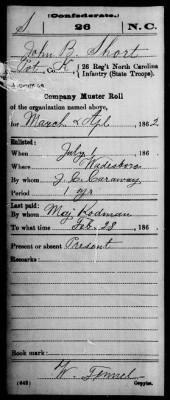 (Confederate.)
S 26 N.C.
John B. Short
Co. K, 26 Reg't North Carolina
Infantry (State Troops).
Company Muster Roll
of the organization named above,
for March & Apl, 1862
Enlisted:
When July 1, 186
Where Wadesboro
By whom J. C. Caraway
Period 1 yr
Last paid:
By whom Maj Rodman
To what time Feb. 28, 186
Present or absent Present
Remarks:
Book mark:
(642) Copyist.